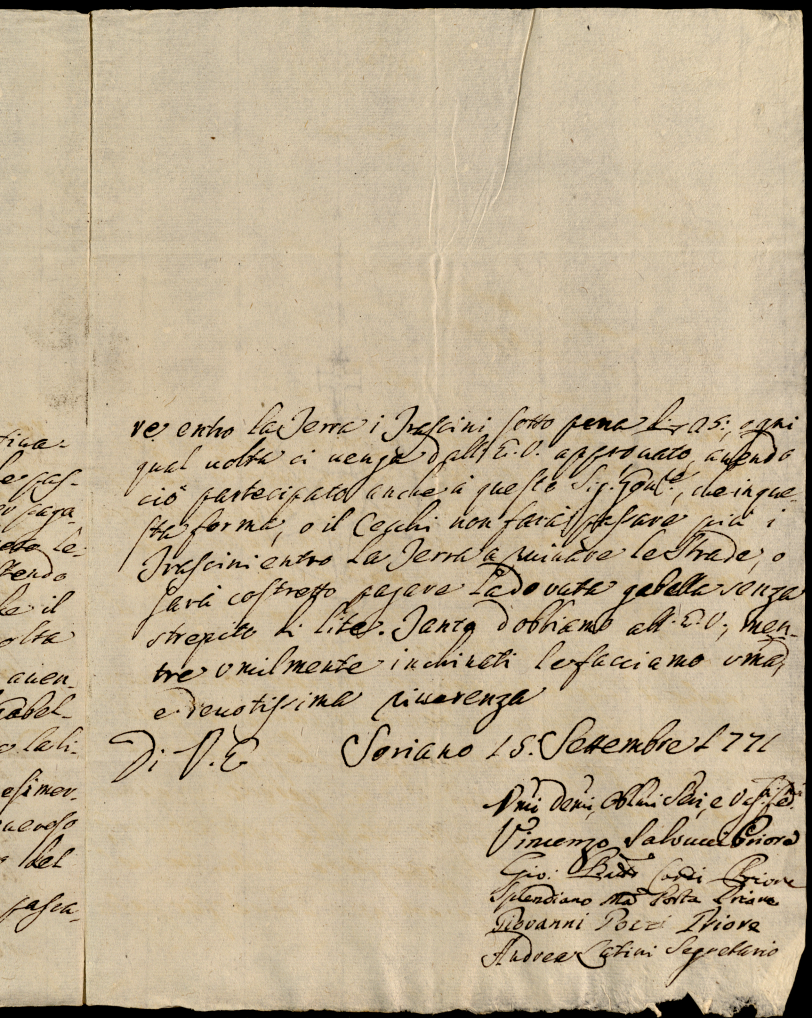 tina-
le pas-
paga
le-
tendo
le il
olta
auen-
Gabel-
la li-
esimer-
neroso
del
pasca-
re entro la Terra i Trascini sotto pena di 25:, ogni
qual uolta ci uenga dall'E.V. approuato, auendo
ciò partecipato anche à questo Sig. Gou.re, che in que-
sta forma, o il Cecchi non farà passare più i
Trascini entro la Terra a ruinare le Strade, o
sarà costretto pagare la douuta gabella senza
strepito di lite. Tanto dobbiamo all'E.V., men-
tre umilmente inchinati le facciamo uma,
e deuotissima riuerenza
Di V.E Soriano 15. Settembre 1771
Umi deui, Obbmi Seri, e
Vincenzo Saluucci Priore
Gio: Batta Priore
Splendiano Ma Porta Priore
Giovanni Pozzi Priore
Andrea Latini Segretario